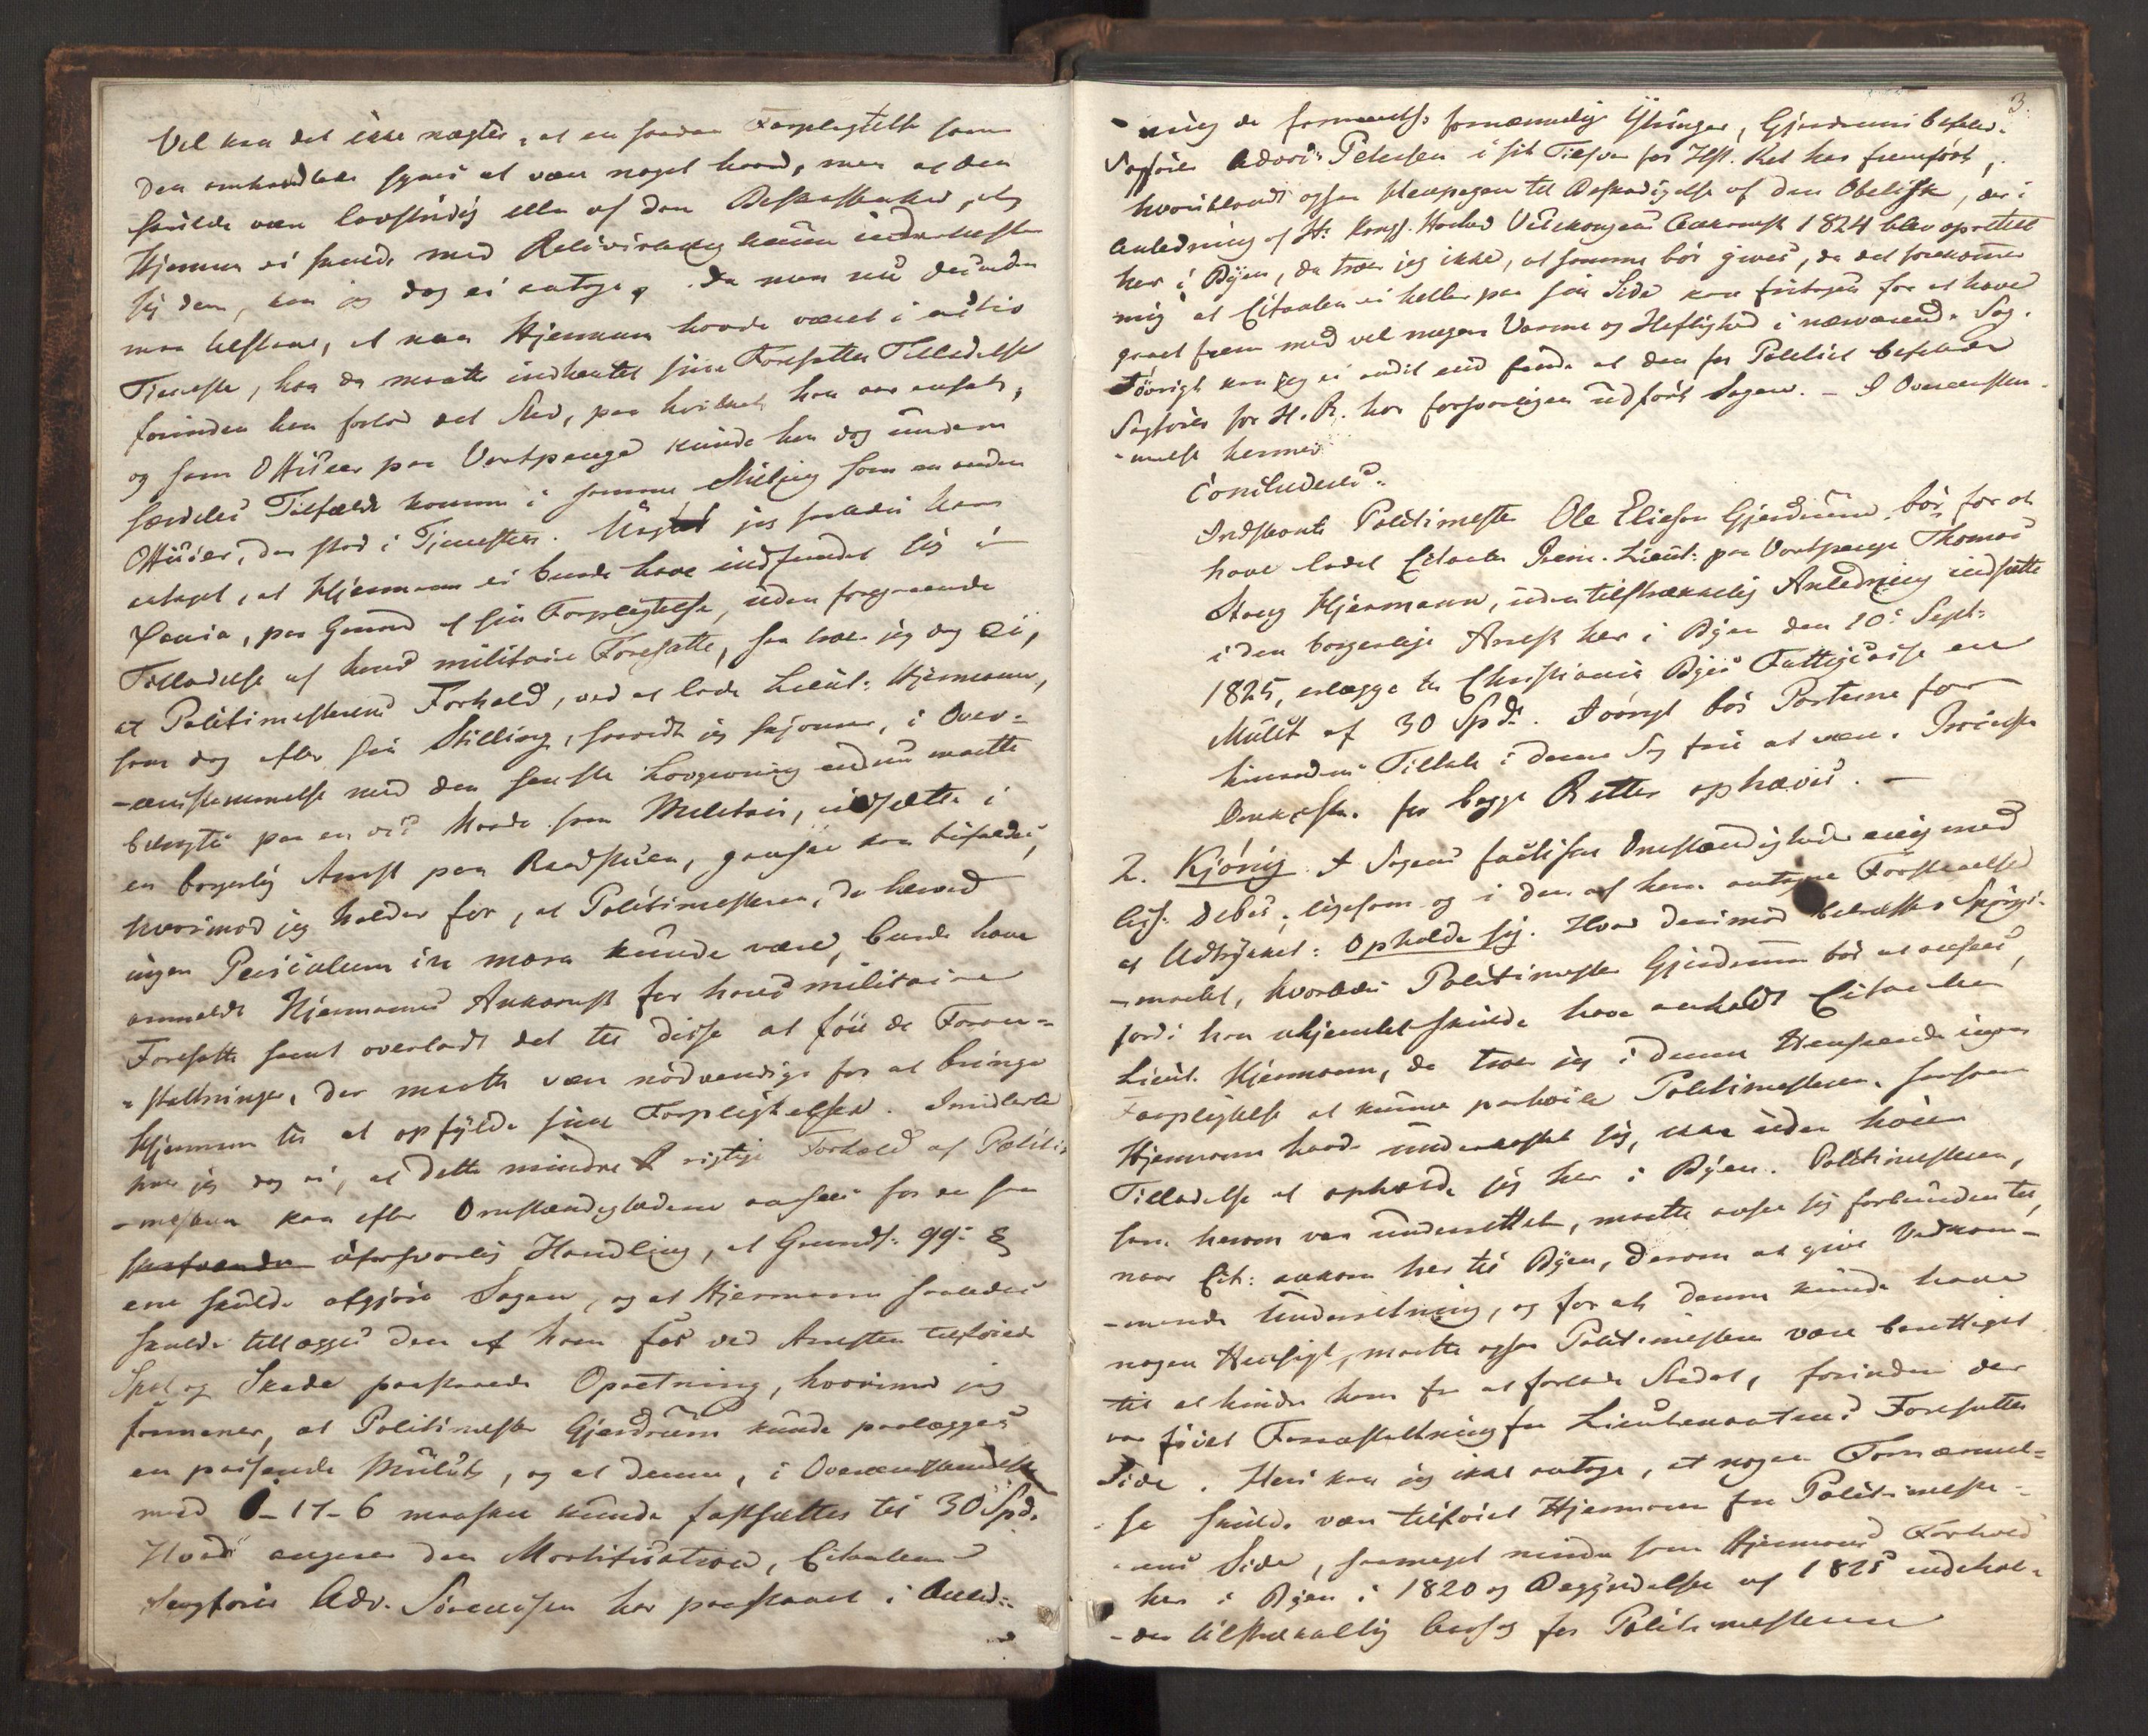 Vel kan det ikke nægtes, at en saadan Forpligtelse som
den omhandlede synes at være noget haard, men at den
skulde være lovstridig eller af den Beskaffenhed, at
Hjermann ei skulde med Retsvirkning kunne underkaste
sig den, kan jeg dog ei antage. Da man nu desuden
maa tilstaae, at naar Hjermann havde været i activ
Tjeneste, han da maatte indhentet sine Foresattes Tilladelse
forinden han forlod det Sted, paa hvilket han var ansat,
og som Officier paa Vartpenge kunde han dog under
særdeles Tilfælde komme i samme Stilling som en anden
Officier, der stod i Tjenesten. Uagtet jeg saaledes har
antaget, at Hjermann ei burde have indfundet sig i
Xania, paa Grund af sin Forpligtelse, uden foregaaende
Tilladelse af hans militaire Foresatte, saa troer jeg dog ei,
at Politimesterens Forhold, ved at lade Lieut: Hjermann,
som dog efter sin Stilling, saavidt jeg skjønner, i Over-
-eensstemmelse med den seneste Lovgivning endnu maatte
betragtes paa en vis Maade som Militair, indsætte i
en borgerlig Arrest paa Raadstuen, ganske kan bifaldes,
hvorimod jeg holder for, at Politimesteren, da herved
ingen Periculum in mora kunde være, burde have
anmeldt Hjermanns Ankomst for hans militaire
Foresatte samt overladt det til disse at føie de Foran-
-staltninger, der maatte være nødvendige for at bringe
Hjermann til at opfylde sine Forpligtelser. Imidlertid
troer jeg dog ei, at dette mindre rigtige Forhold af Politi-
-mesteren kan efter Omstændighederne ansees for en saa
uforsvarlig Handling, at Grundl: 99: §
ene skulde afgjøre Sagen, og at Hjermann saaledes
skulde tillægges den af ham for ved Arresten tilføiede
Spot og Skade paastaaede Opretning, hvorimod jeg
formener, at Politimester Gjerdrum kunde paalægges
en passende Mulct, og at denne, i Overeensstemmelse
med 6-17-6 maaskee kunde fastsættes til 30 Spd.
Hvad angaaer den Mortification, Citantens
Sagfører Adv. Sørenssen har paastaaet i Anled-

3.
-ning de formeentl. fornærmelige Yttringer, Gjerdrums befalede
Sagfører Advoc: Petersen i sit Tilsvar for Høst. Ret har fremført,
hvoriblandt ogsaa Henpegen til Beskadigelse af den Obelisk, der i
Anledning af Hs. Kongl. Høihed Vicekongens Ankomst 1824 blev oprettet
her i Byen, da troer jeg ikke, at samme bør gives, da det forekommer
mig at Citanten ei heller paa sin Side kan fritages for at have
gaaet frem med vel megen Varme og Heftighed i nærværende Sag.
Iøvrigt kan jeg ei andet end finde at den for Politiet befalede
Sagfører for H. R. har forsvarligen udført Sagen. – I Overeensstem-
-melse hermed
Concluderes:
Indstævnte Politimester Ole Eliesen Gjerdrum bør for at
have ladet Citanten Prem. Lieut: paa Vartpenge Thomas
Stang Hjermann, uden tilstrækkelig Anledning indsætte
i den borgerlige Arrest her i Byen den 10: Sept:
1825, erlægge til Christiania Byes Fattigcasse en
Mulct af 30 Spd. Iøvrigt bør Parterne for
hinandens Tiltale i denne Sag frie at være. Processens
Omkostn. for begge Retter ophæves. –
2. Kjønig. I Sagens factiske Omstændigheder enig med
Ass. Debes, ligesom og i den af ham antagne Forstaaelse
af Udtrykket: Opholde sig. Hvad derimod betræffer Spørgs-
-maalet, hvorledes Politimester Gjerdrum bør at ansees,
fordi han uhjemlet skulde have anholdt Citanten
Lieut. Hjermann, da troer jeg i denne Henseende ingen
Forpligtelse at kunne paahvile Politimesteren. Saasom
Hjermann havde underkastet sig, ikke uden høiere
Tilladelse at opholde sig her i Byen. Politimesteren,
som herom var underrettet, maatte ansee sig forbunden til,
naar Cit: ankom her til Byen, derom at give Vedkom-
-mende Underretning, og for at denne kunde have
nogen Hensigt, maatte ogsaa Politimesteren være berettiget
til at hindre ham fra at forlade Stedet, forinden der
var føiet Foranstaltning fra Lieutenantens Foresattes
Side. Heri kan jeg ikke antage, at nogen Fornærmel-
-se skulde være tilføiet Hjermann fra Politimester-
-ens Side, saameget mindre som Hjermanns Forhold
her i Byen i 1820 og Begyndelsen af 1825 indehol-
-der tilstrækkelig Aarsag for Politimesteren